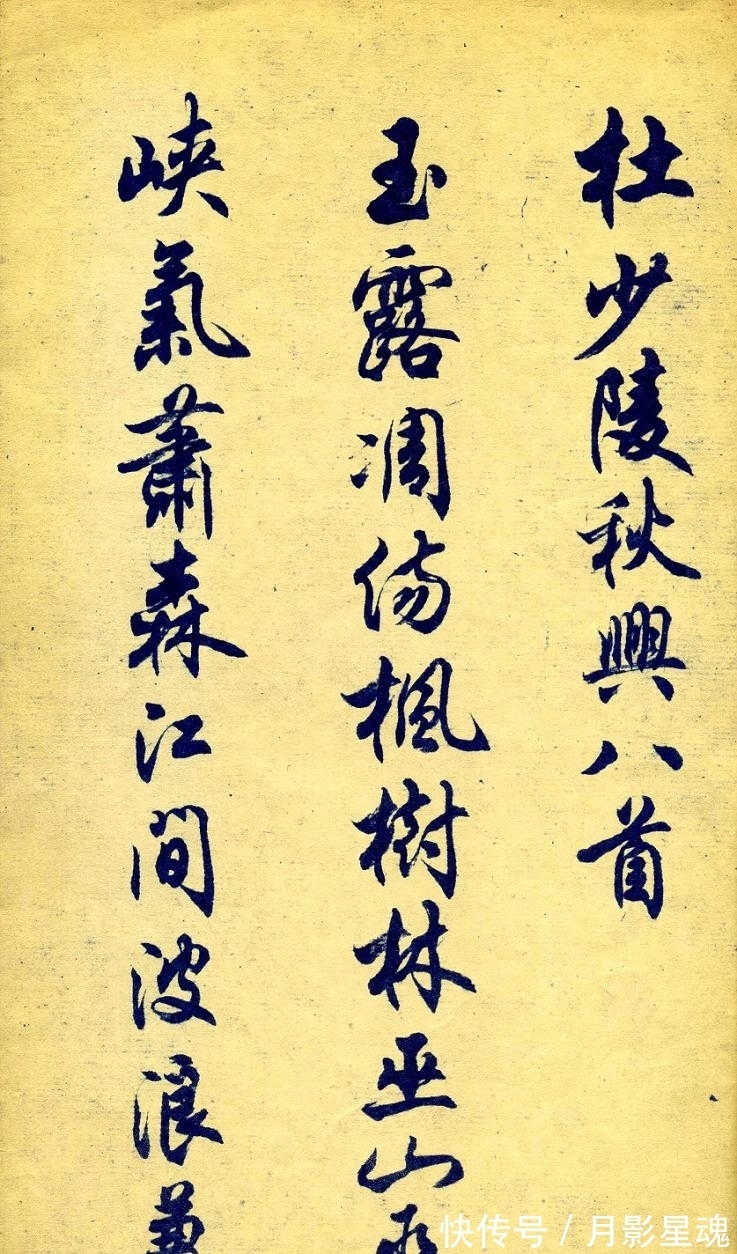 杜少陵秋興八首
玉露凋傷楓樹林巫山
峽氣蕭森江間波浪
快传号 / 月影星魂